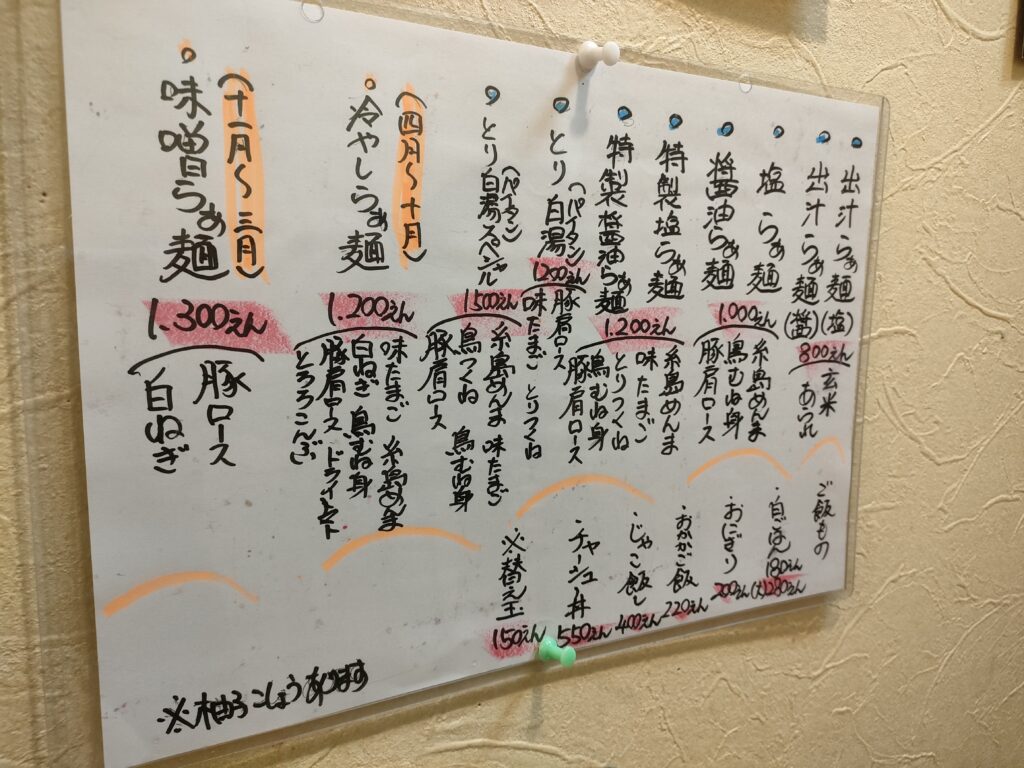 出汁らぁ麺(塩)
出汁らぁ麺(醤)
800えん
玄米
あられ
塩らぁ麺
醤油らぁ麺
1.000えん
糸島めんま
鳥むね身
豚肩ロース
特製塩らぁ麺
特製醤油らぁ麺
1.200えん
糸島めんま
味たまご
とりつくね
鳥むね身
豚肩ロース
とり白湯(パイタン)
1200えん
豚肩ロース
味たまご とりつくね
とり白湯スペシャル(パイタン)
1500えん
糸島めんま 味たまご
鳥つくね 鳥むね身
豚肩ロース
(四月〜十月)
冷やしらぁ麺
1.200えん
味たまご 糸島めんま
白ねぎ 鳥むね身
豚肩ロース ドライトマト
とろろこんぶ
(十一月〜三月)
味噌らぁ麺
1.300えん
豚ロース
白ねぎ
ご飯もの
・白ごはん 180えん
(大)280えん
・おにぎり 200えん
・おかかご飯 220えん
・じゃこ飯 400えん
・チャーシュー丼 550えん
※替え玉 150えん
※柚子こしょうあります